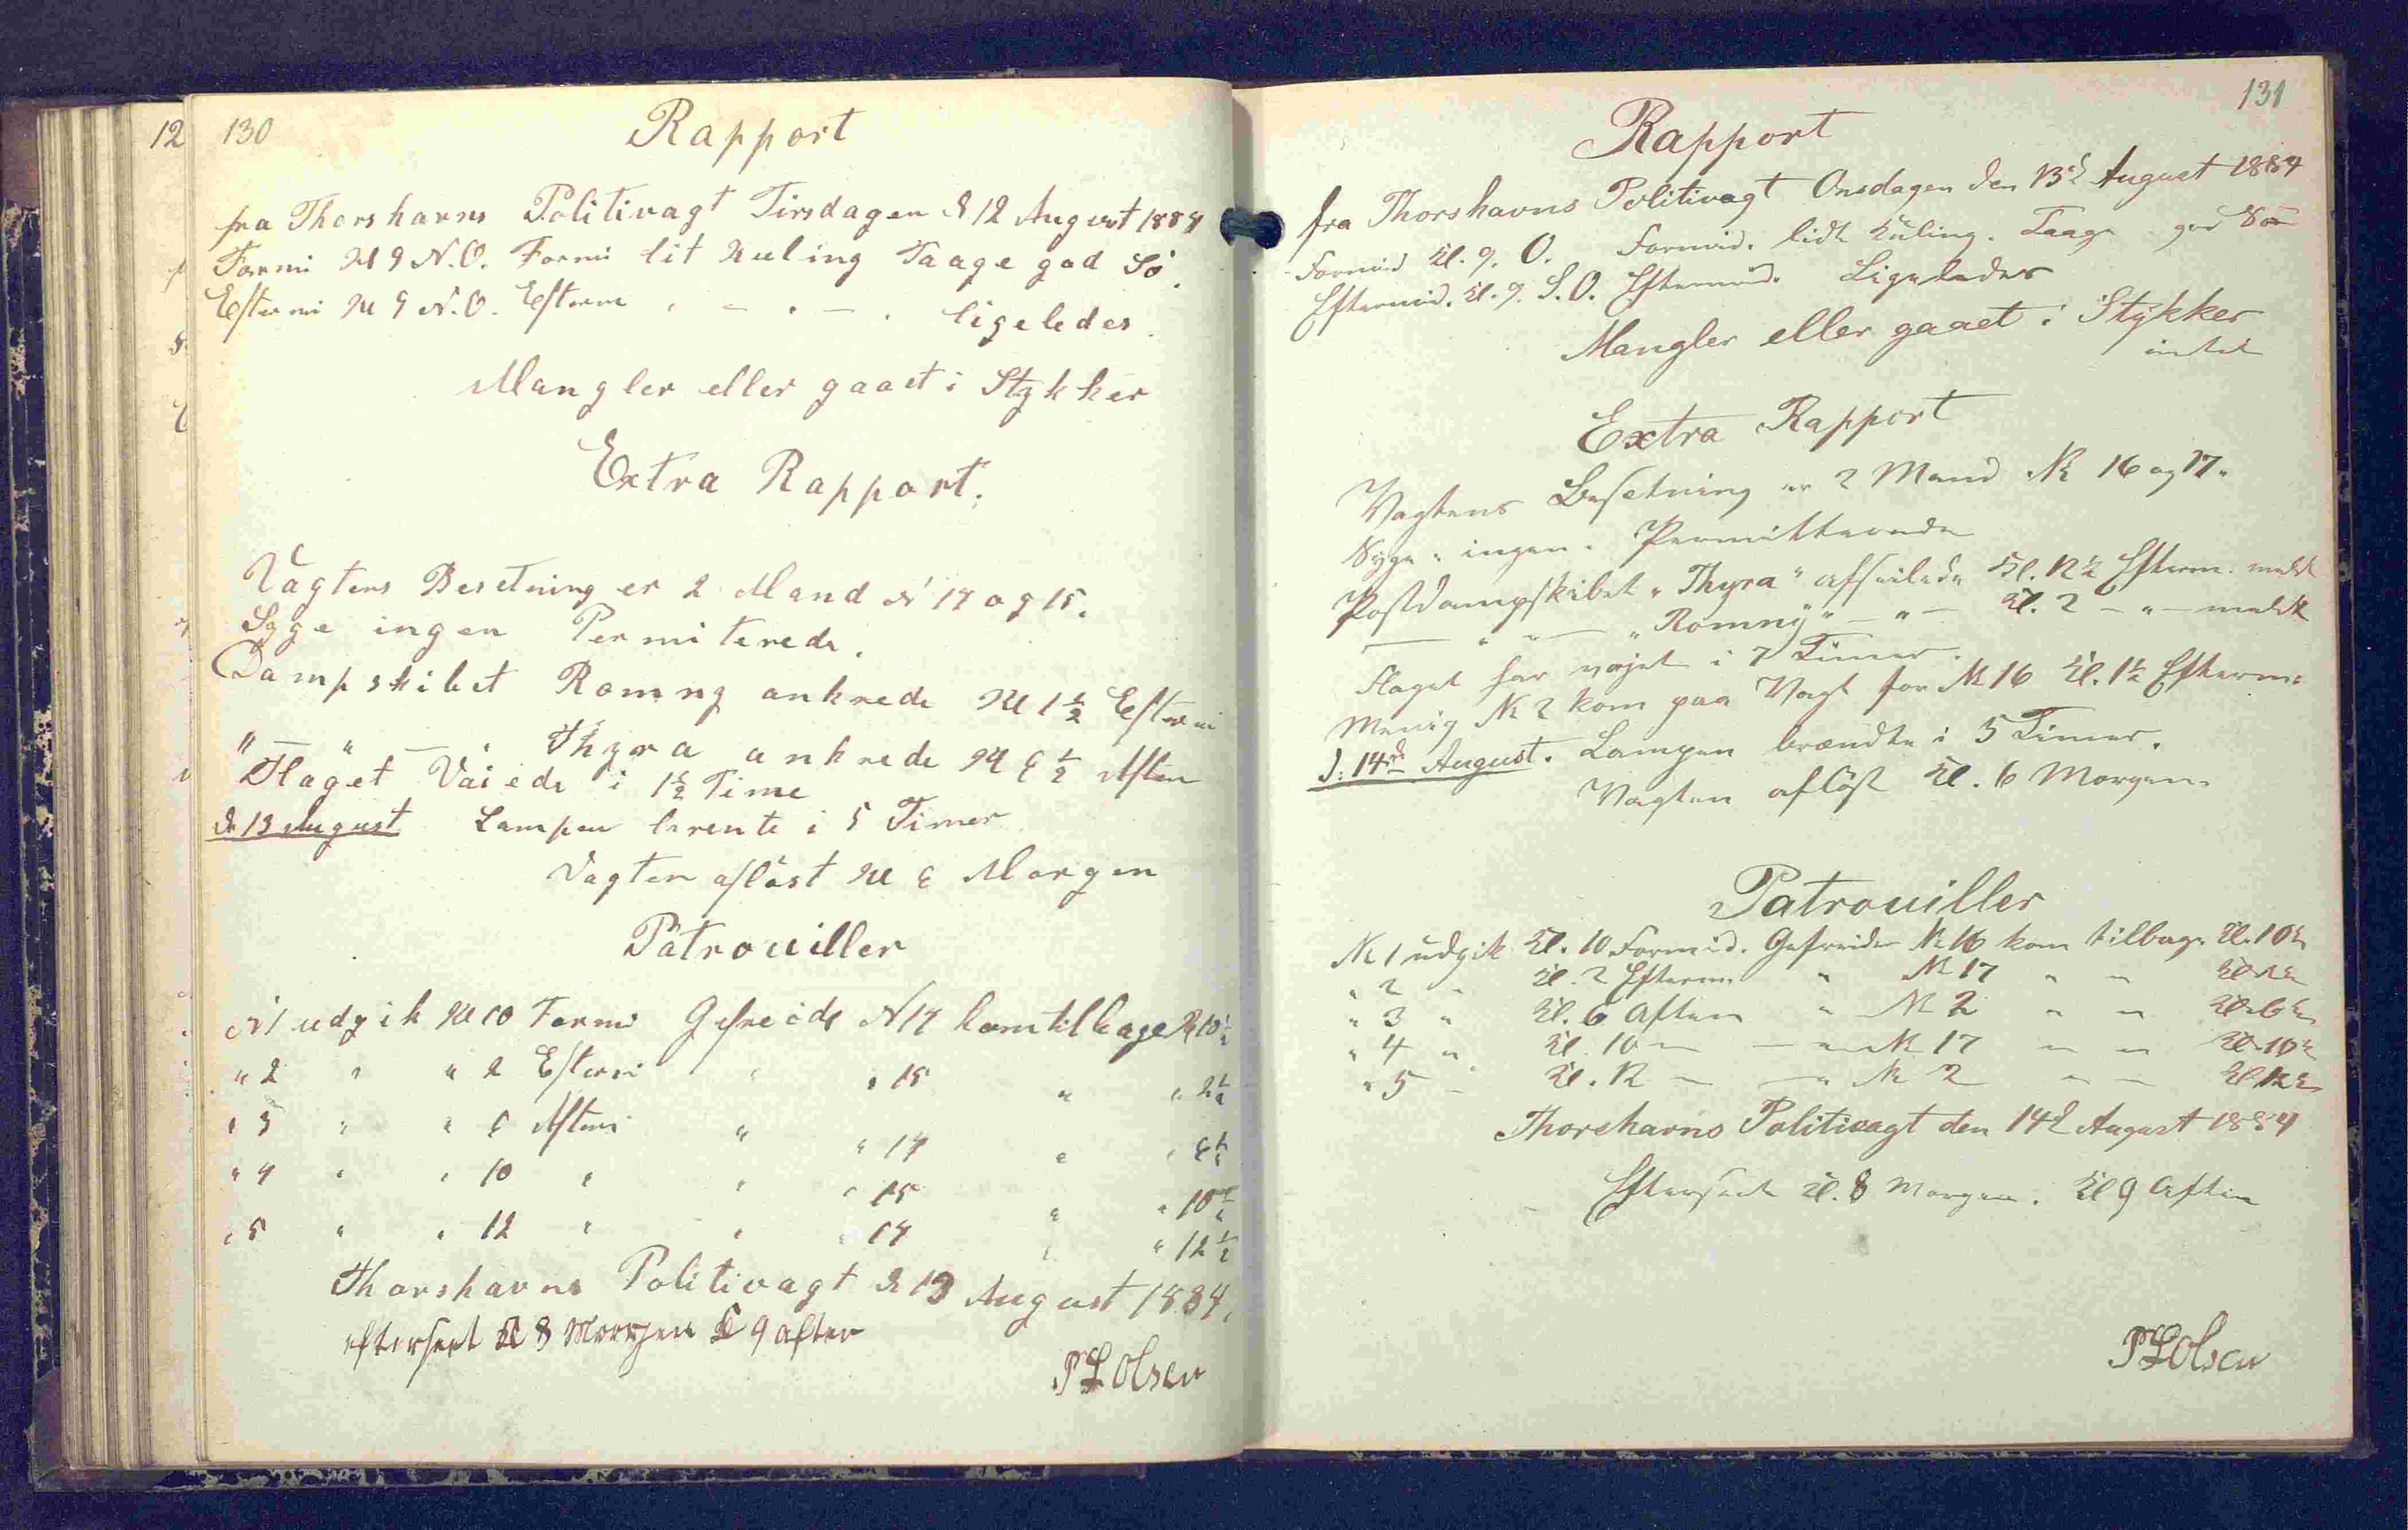 12
130
Rapport
fra Thorshavns Politivagt Tirsdagen d 12 August 1884
Formi Kl 9 N.O. Formi lit Kuling Taage god Sö.
Eftermi Kl 9 N.O. Efterm " – " – " ligeledes.
Mangler eller gaaet i Stykker
Extra Rapport.
Vagtens Besetning er 2 Mand N 14 og 15.
Syge ingen Permiterede.
Dampskibet Romny ankrede Kl 1 1/2 Eftermi
" – " – " Thyra ankrede Kl 6 1/2 Aften
Flaget Vaiede i 1 1/2 Time
d 13 August Lampen brente i 5 Timer
Vagten aflöst Kl 6 Morgen
Patrouiller
N 1 udgik Kl 10 Formi Gefreide N 14 kom tilbage Kl 10 1/2
" 2 " " 2 Eftermi " " 15 " " 2 1/2
" 3 " " 6 Afteni " " 14 " " 6 1/2
" 4 " " 10 " " " 15 " " 10 1/2
" 5 " " 12 " " " 14 " " 12 1/2
Thorshavns Politivagt d 13 August 1884,
efterseet Kl 8 Morgen Kl 9 Aften
PL Olsen
131
Rapport
fra Thorshavns Politivagt Onsdagen den 13d August 1884
Formid Kl. 9. O. Formid. lidt Kuling. Taage god Sö
Eftermid. Kl. 9. S.O. Eftermid. Ligeledes
Mangler eller gaaet i Stykker
intet
Extra Rapport
Vagtens Besetning er 2 Mand Nr 16 og 17.
Syge " ingen. Permitterede
Postdampskibet "Thyra" afseilede Kl. 12 1/2 Efterm. meldt
— " " — "Romny" – " – Kl. 2 – " – meldt
Flaget har vajet i 7 Timer.
Menig Nr 2 kom paa Vagt for Nr 16 Kl. 1 1/2 Efterm:
d: 14de August. Lampen brændte i 5 Timer.
Vagten aflöst Kl. 6 Morgen.
Patrouiller
Nr 1 udgik Kl. 10 Formid. Gefreider Nr 16 kom tilbage Kl. 10 1/2
" 2 " Kl. 2 Efterm. " Nr 17 " "
" 3 " Kl. 6 Aften " Nr 2 " " Kl. 6 1/2
" 4 " Kl. 10 – – " Nr 17 " " Kl. 10 1/2
" 5 – Kl. 12 – – " Nr 2 – – Kl 12 1/2
Thorshavns Politivagt den 14d August 1884
Efterseet Kl. 8 Morgen. Kl 9 Aften
PL Olsen